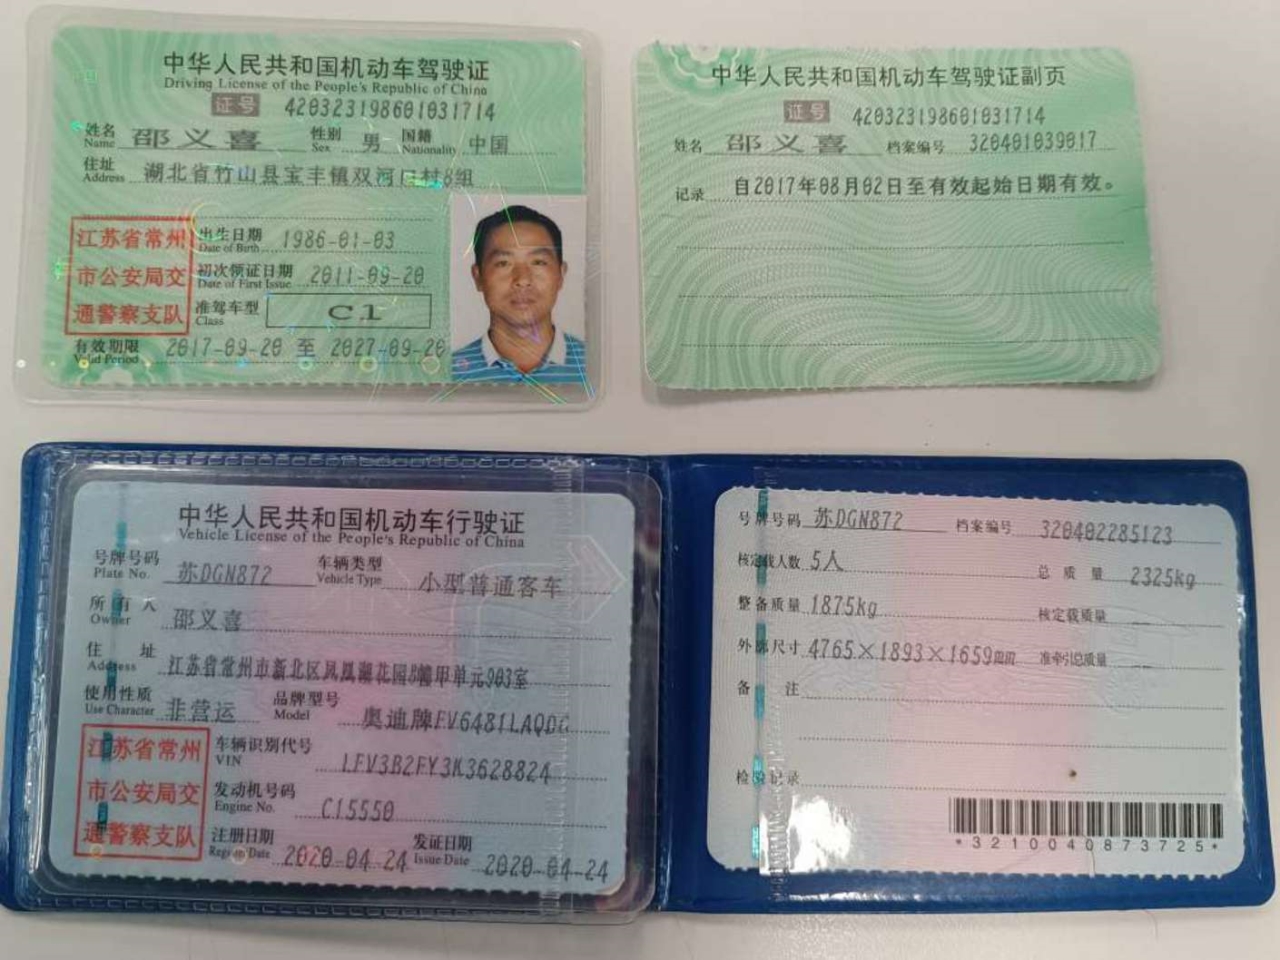 中华人民共和国机动车驾驶证
Driving License of the People's Republic of China
证号 420323198601031714
姓名 Name 邵义喜 性别 Sex 男 国籍 Nationality 中国
住址 Address 湖北省竹山县宝丰镇双河口村8组
江苏省常州
市公安局交
通警察支队
出生日期 Date of Birth 1986-01-03
初次领证日期 Date of First Issue 2011-09-20
准驾车型 Class C1
有效期限 Valid Period 2017-09-20 至 2027-09-20
中华人民共和国机动车驾驶证副页
证号 420323198601031714
姓名 邵义喜 档案编号 320401039017
记录 自2017年08月02日至有效起始日期有效。
中华人民共和国机动车行驶证
Vehicle License of the People's Republic of China
号牌号码 Plate No. 苏DGN872 车辆类型 Vehicle Type 小型普通客车
所有人 Owner 邵义喜
住址 Address 江苏省常州市新北区凤凰湖花园8幢甲单元903室
使用性质 Use Character 非营运 品牌型号 Model 奥迪牌FV6481LAQDG
江苏省常州
市公安局交
通警察支队
车辆识别代号 VIN LFV3B2FY3K3628824
发动机号码 Engine No. C15550
注册日期 Register Date 2020-04-24 发证日期 Issue Date 2020-04-24
号牌号码 苏DGN872 档案编号 320402285123
核定载人数 5人 总质量 2325kg
整备质量 1875kg 核定载质量
外廓尺寸 4765×1893×1659mm 准牵引总质量
备注
检验记录
*3210040873725*